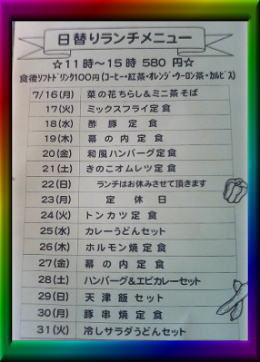 日替りランチメニュー
☆11時～15時 580円☆
食後ソフトドリンク100円(コーヒー・紅茶・オレンジ・ウーロン茶・カルピス)
7/16(月) 菜の花ちらし＆ミニ茶そば
17(火) ミックスフライ定食
18(水) 酢豚定食
19(木) 幕の内定食
20(金) 和風ハンバーグ定食
21(土) きのこオムレツ定食
22(日) ランチはお休みさせて頂きます
23(月) 定休日
24(火) トンカツ定食
25(水) カレーうどんセット
26(木) ホルモン焼定食
27(金) 幕の内定食
28(土) ハンバーグ＆エビカレーセット
29(日) 天津飯セット
30(月) 豚串焼定食
31(火) 冷しサラダうどんセット